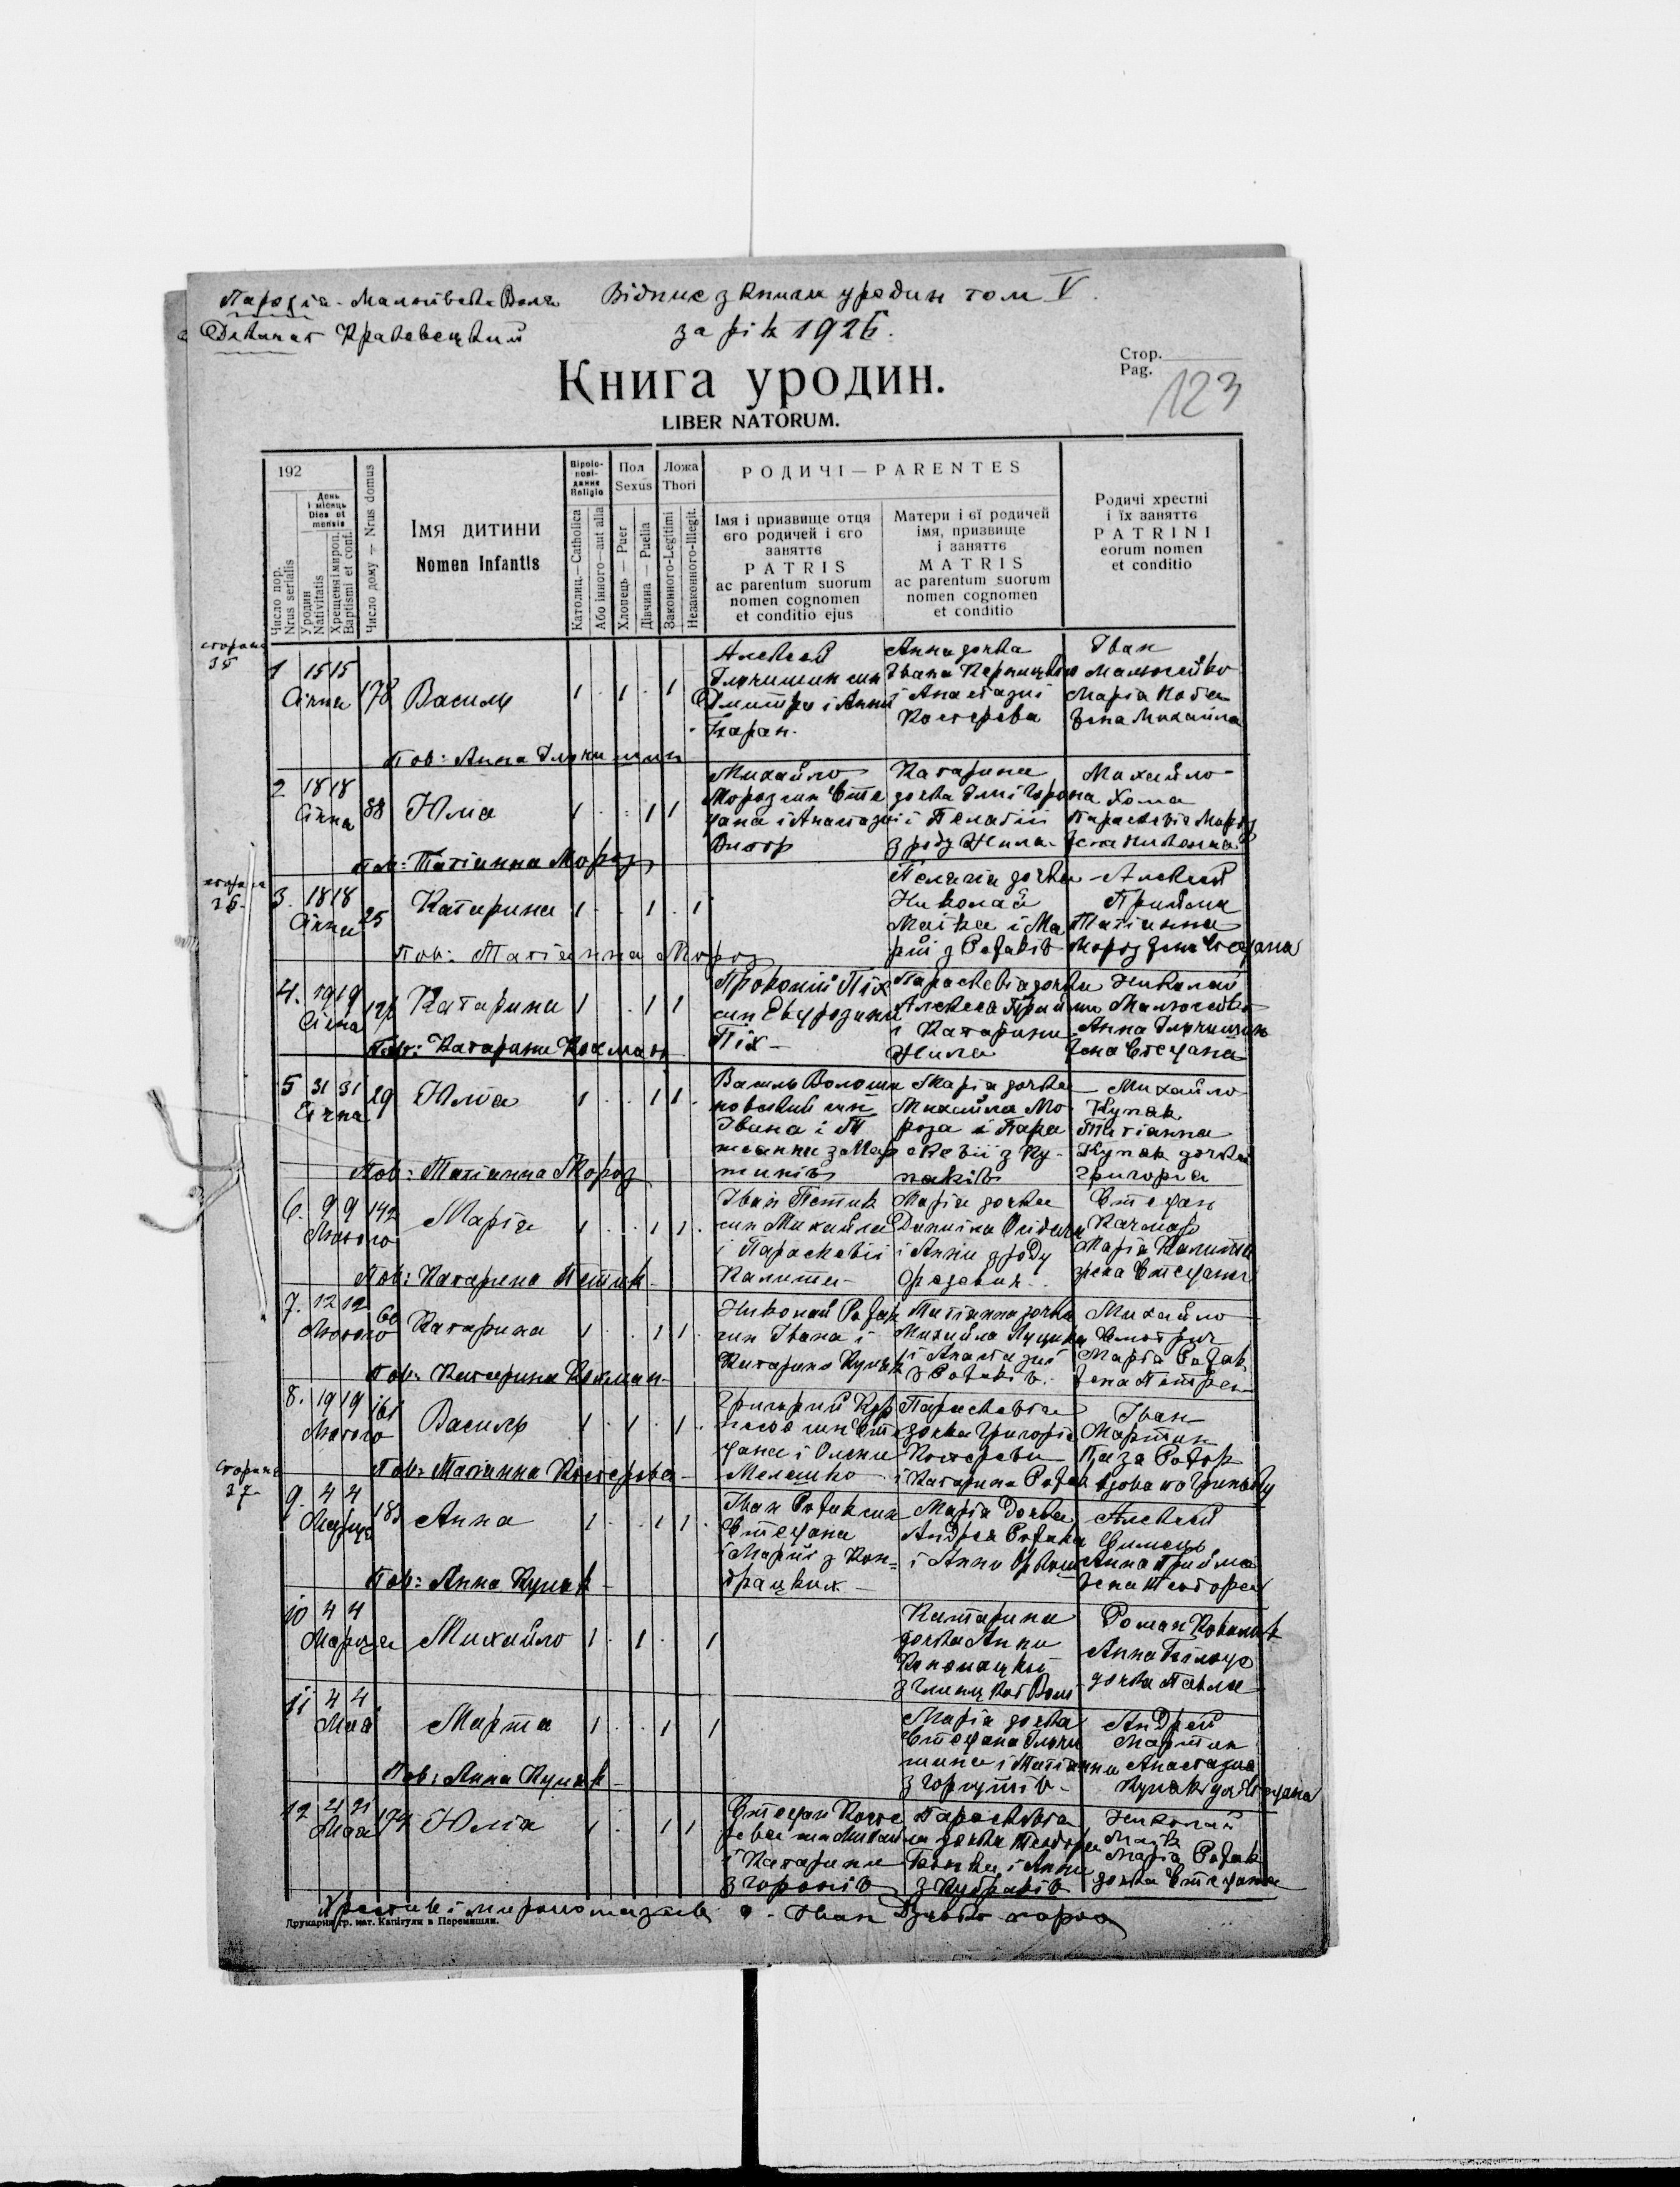 Парохія - Мальнівска Воля
Відпис з книги уродин том V.
Деканат Краковецкий
за рік 1926.
Стор.
Pag.
123
Книга уродин.
LIBER NATORUM.
192
Число пор.
Nrus serialis
День
і місяць
Dies et
mensis
Уродин
Nativitatis
Хрещеня і мироп.
Baptismi et conf.
Число дому — Nrus domus
Імя дитини
Nomen Infantis
Віроіс-
пові-
данне
Religio
Католиц.—Catholica
Або інного—aut alia
Пол
Sexus
Хлопець — Puer
Дівчина — Puella
Ложа
Thori
Законного-Legitimi
Незаконного-Illegit.
РОДИЧІ — PARENTES
Імя і призвище отця
єго родичей і єго
занятте
PATRIS
ac parentum suorum
nomen cognomen
et conditio ejus
Матери і єї родичей
імя, призвище
і занятте
MATRIS
ac parentum suorum
nomen cognomen
et conditio
Родичі хрестні
і їх занятте
PATRINI
eorum nomen
et conditio
сторона
35
1 15 15
Січня 178 Василь 1 1 1
Алексей
Ілючишин син
Дмитра і Анни
Баран.
Анна дочка
Івана
і Анастазиї
Костерева
Іван
Мальчейко
Марія
жена Михайла
Пов: Анна Ілючишин
2 18 18
Січня 88 Юлія 1 1 1
Михайло
Мороз син Сте
фана і Анастазиї
Катарина
дочка Ілиї Горона
і Пелагії
з роду Жила
Михайло
Хома
Параскевія Мороз
жена Николая
Пов: Татіанна Мороз
сторона
36
3. 18 18
Січня 25 Катарина 1 1 1
Пелагія дочка
Николая
Маїка і Ма
рії з Ротаків
Алексей
Прийма
Татіанна
Мороз жена Стефана
Пов: Татіанна Мороз
4. 19 19
Січня 126 Катарина 1 1 1
Прокопій Піх
син Евфрозини
Піх
Параскевія дочка
Алексея Прийми
і Катарини
Жила
Николай
Анна Ілючишин
жена Стефана
Пов: Катарина Кохман
5 31 31
Січня 29 Юлія 1 1 1
Василь Волоши
новский син
Івана і Та
тіанни з Мар
тинів
Марія дочка
Михайла Мо
роза і Пара
скевії з Ку-
паків
Михайло
Купяк
Татіанна
Купяк дочка
Григорія
Пов: Татіанна Мороз
6. 9 9 142
Лютого Марія 1 1 1
Іван Петик
син Михайла
і Параскевії
Калити
Марія дочка
Данила
і Анни з роду
Стефан
Качмар
Марія Калита
жена Стефана
Пов: Катарина Петик
7. 12 12 60
Лютого Катарина 1 1 1
Николай Ротак
син Івана і
Катарини Купяк
Татіанна дочка
Михайла Луцика
і Анастазиї
з Ротаків.
Михайло
Марія Ротак
жена Петра
Пов: Катарина Кохман
8. 19 19 161
Лютого Василь 1 1 1
Григорий
син Сте
фана і Олени
Мелешко
Параскевія
дочка Григорія
Костереви
і Катарини Ротак
Іван
Мартин
Ротак
вдова по Григорію
Пов: Татіанна Костерева
сторона
37
9. 4 4
Марця 183 Анна 1 1 1
Іван Ротак син
Стефана
і Марії з Кон-
драцких
Марія дочка
Андрея Ротака
і Анни
Алексей
Анна Прийма
жена Теодора
Пов: Анна Купяк
10 4 4
Марця Михайло 1 1 1
Катарина
дочка Анни
Роман Ковалик
Анна
дочка Павла
11 4 4
Мая Марта 1 1 1
Марія дочка
Стефана Ілючи
шина і Татіанни
Андрей
Мартин
Анастазия
Купяк доч Стефана
Пов: Анна Купяк
12 21 21
Мая 174 Юлія 1 1 1
Стефан Косте
рева син Михайла
і Катарини
з Горонів
Параскевія
дочка Теодора
і Анни
Николай
Маїк
Марія Ротак
дочка Стефана
Хрестив і миропомазав о. Іван парох
Друкарня гр. кат. Капітули в Перемишли.